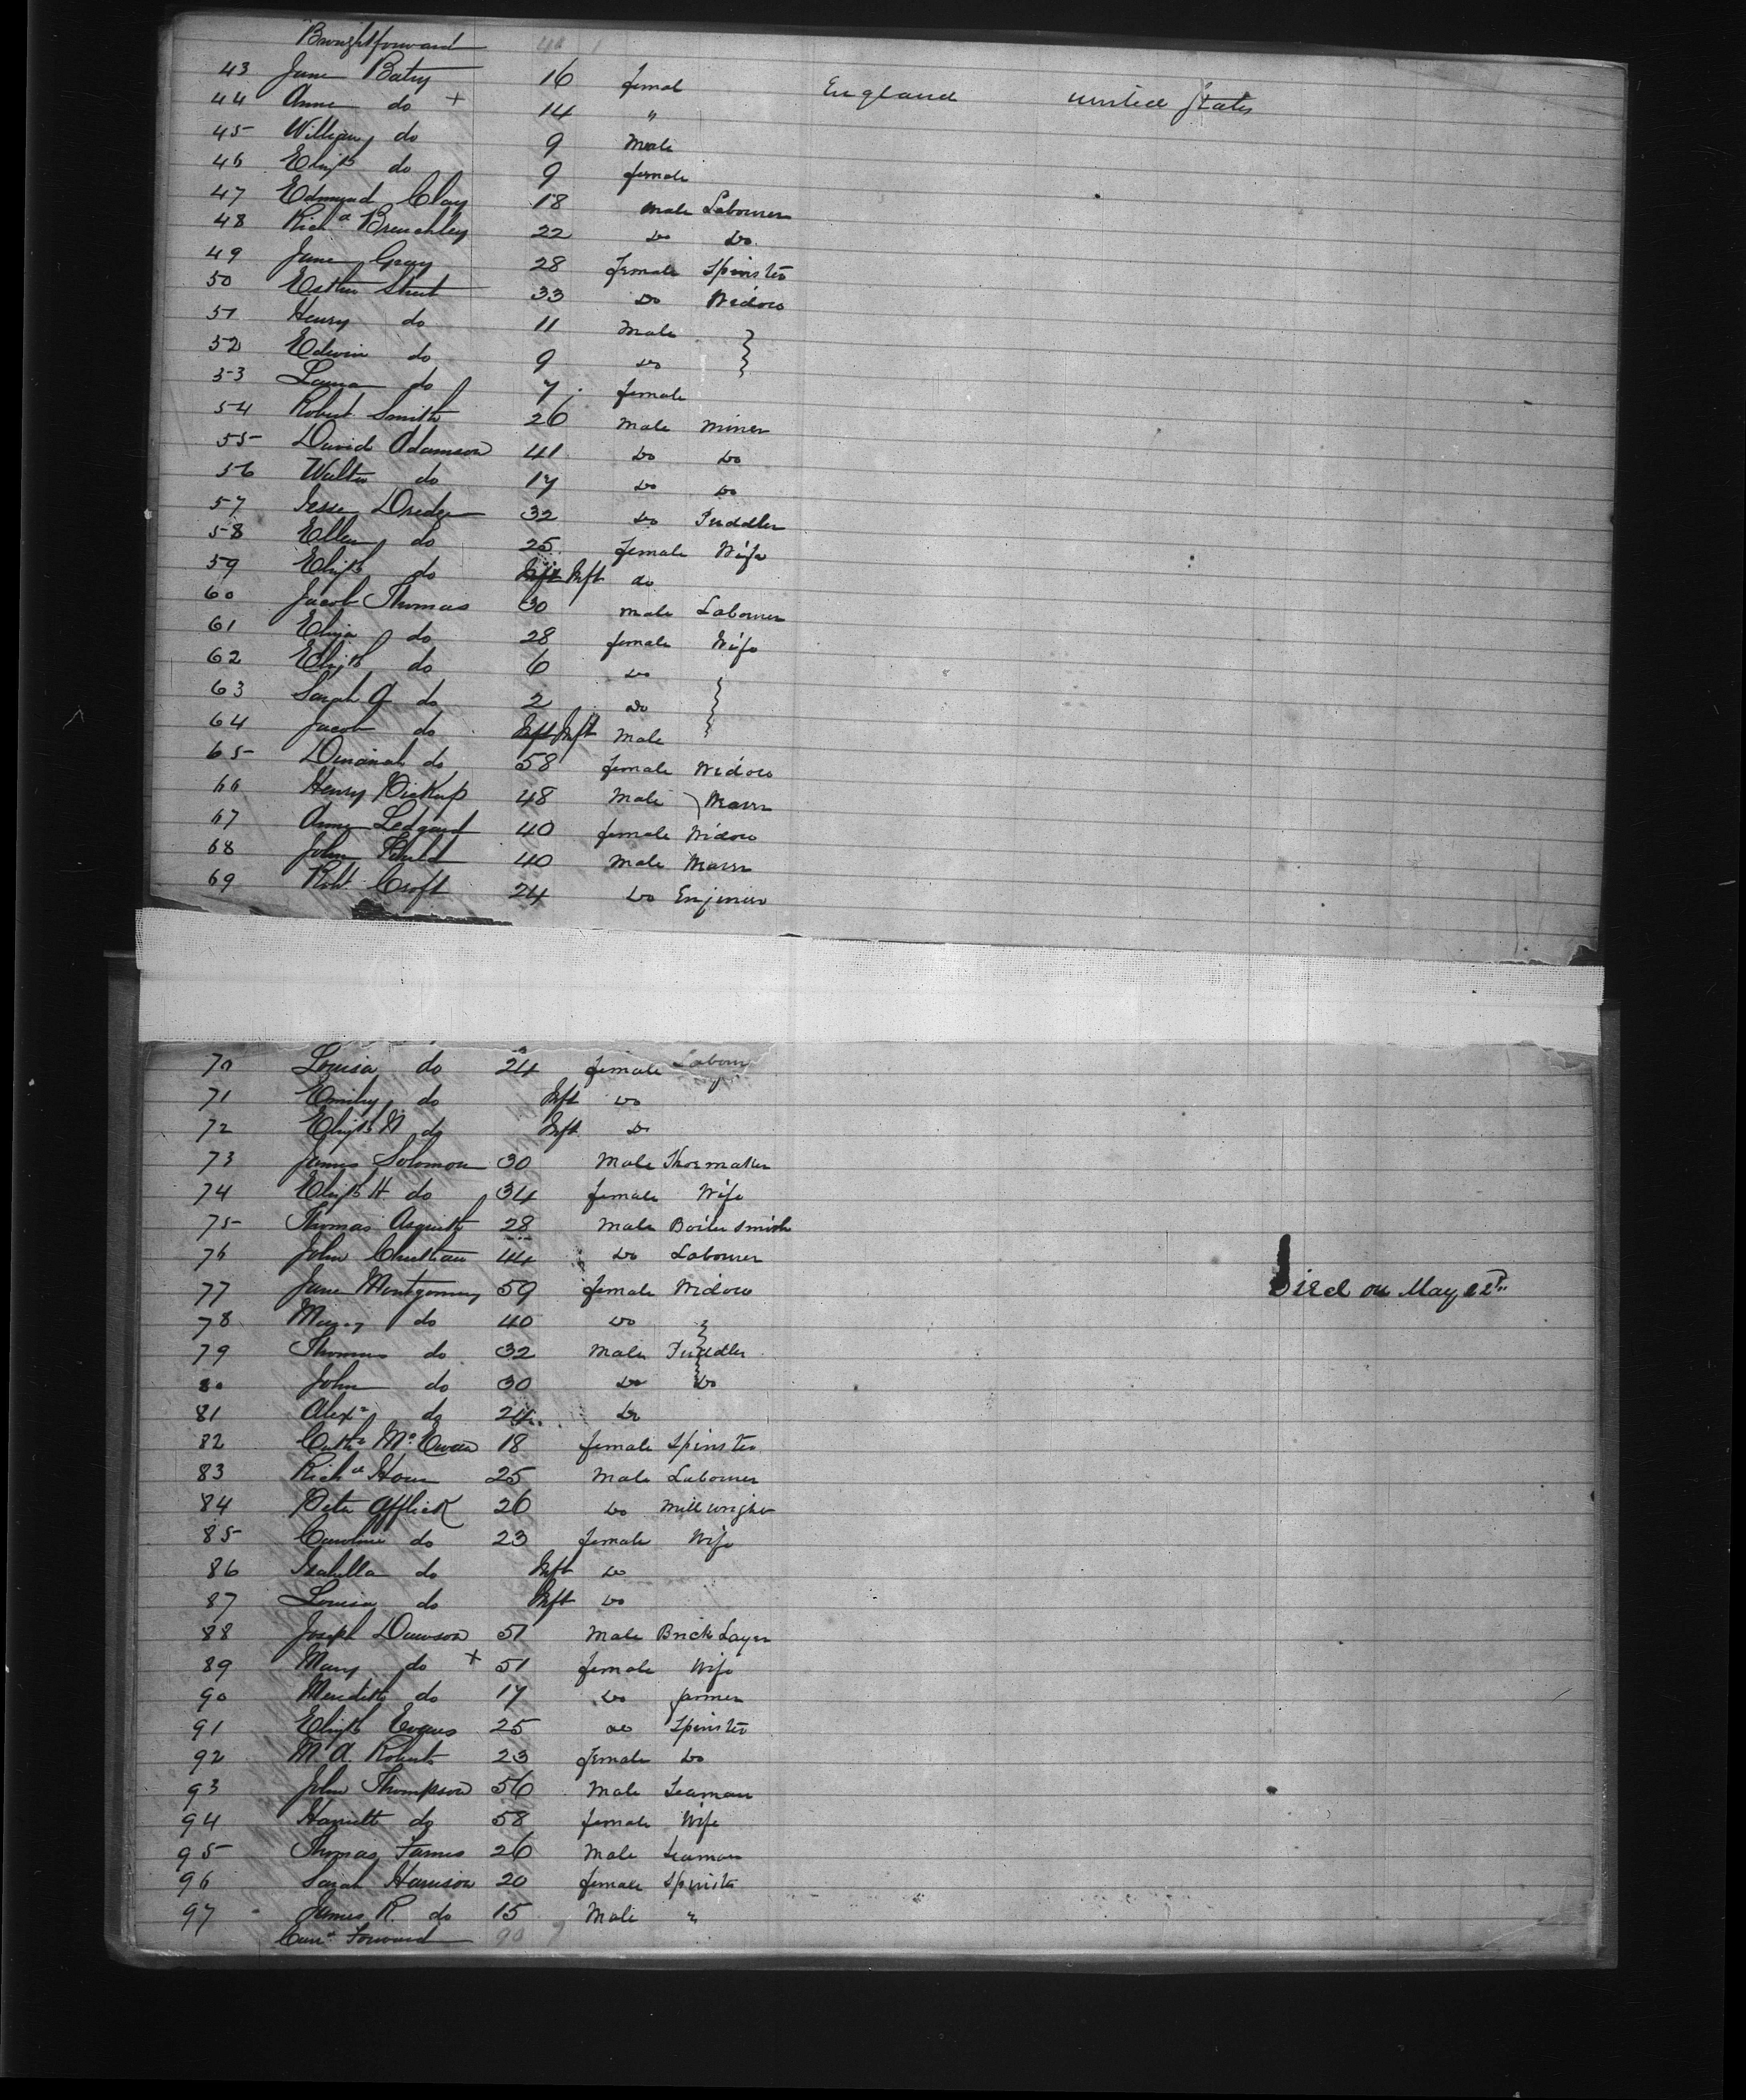 Brought forward
43 Jane Batey 16 female England United States
44 Anne do + 14 "
45 William do 9 Male
46 Elizth do 9 female
47 Edmund Clay 18 Male Labourer
48 Richd Brenchley 22 Do Do
49 Jane Gray 28 female Spinster
50 Esther Strut 33 Do Widow
51 Henry do 11 Male
52 Edwin do 9 Do
53 Laura do 7 female
54 Robert Smith 26 Male Miner
55 David Adamson 41 Do Do
56 Walter do 17 Do Do
57 Jesse Dredge 32 Do Puddler
58 Ellen do 25 female Wife
59 Elizth do Inft Inft do
60 Jacob Thomas 30 Male Labourer
61 Eliza do 28 female Wife
62 Elizth do 6 Do
63 Sarah A do 2 Do
64 Jacob do Inft Inft Male
65 Dinanah do 58 female Widow
66 Henry Pickup 48 Male Mason
67 Anne Ledgard 40 female Widow
68 John 40 Male Mason
69 Robt Croft 24 Do Enjineer
70 Louisa do 24 female Labour
71 Emily do Inft Do
72 Elizth A do Inft Do
73 James Solomon 30 Male Shoemaker
74 Elizth H do 34 female Wife
75 Thomas Asquith 28 Male Boiler Smith
76 John Christian 44 Do Labourer
77 Jane Montgomery 59 female Widow Died on May 12th
78 Mary do 40 Do
79 Thomas do 32 Male Puddler
80 John do 30 Do Do
81 Alexr do 24 Do
82 Cathe McEwan 18 female Spinster
83 Richd Horn 25 Male Labourer
84 Peter Afflick 26 Do Mill wright
85 Caroline do 23 female Wife
86 Isabella do Inft Do
87 Louisa do Inft Do
88 Joseph Dawson 51 Male Brick Layer
89 Mary do + 51 female Wife
90 Meredith do 17 Do
91 Elizth Evans 25 do Spinster
92 M. A. Roberts 23 female Do
93 John Thompson 56 Male Seaman
94 Harriett do 58 female Wife
95 Thomas 26 Male Seaman
96 Sarah Harrison 20 female Spinster
97 James R. do 15 Male "
Carrd Forward 90 7